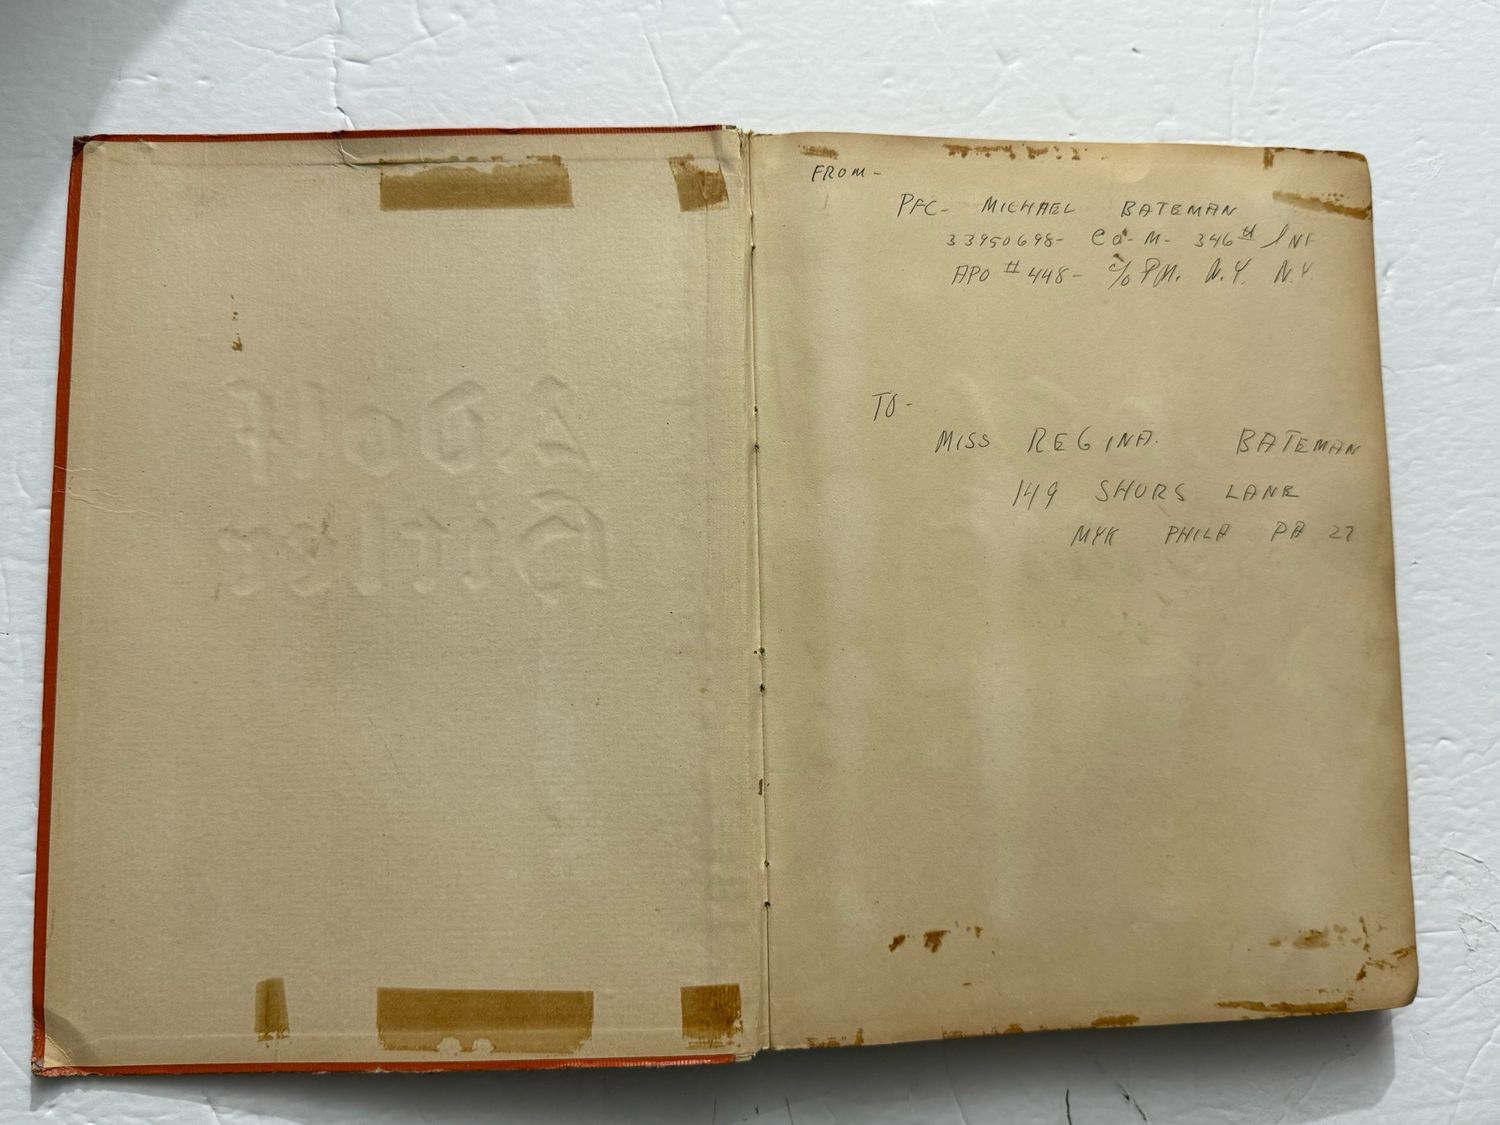 ADOLF
HITLER
FROM-
PFC- MICHAEL BATEMAN
33950698- Co- M- 346th INF
APO # 448- c/o P.M. N.Y. N.Y.
TO-
MISS REGINA. BATEMAN
149 SHURS LANE
MYK PHILA PA 27